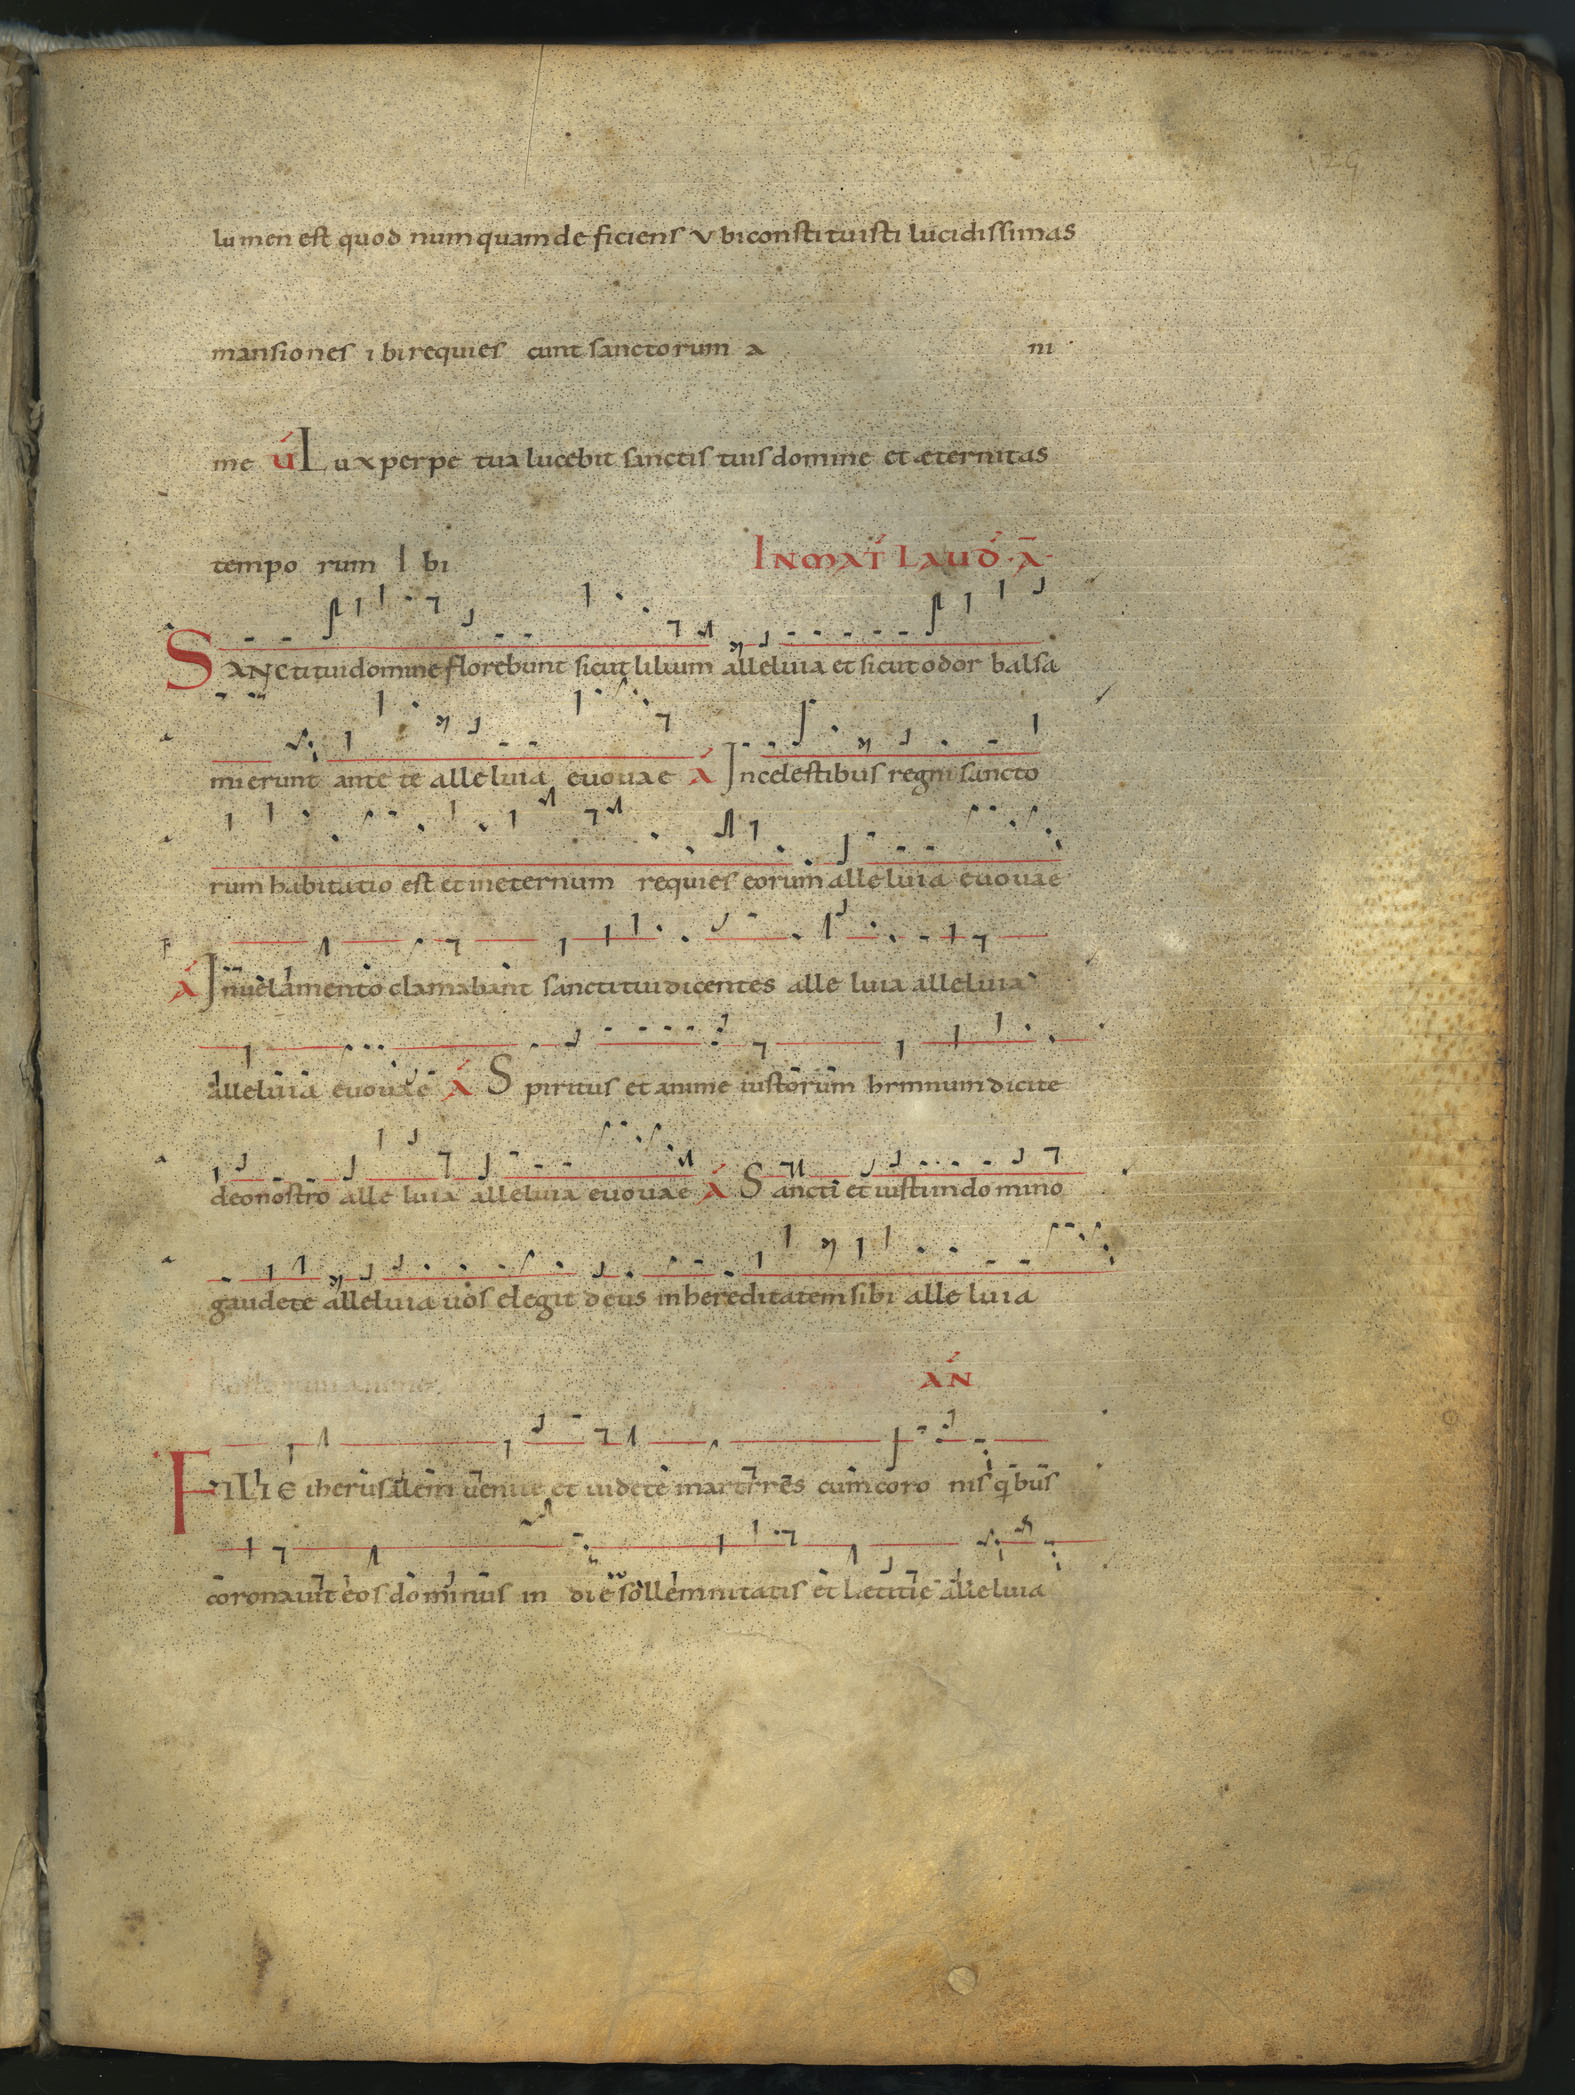 29
lumen est quod numquam de ficiens Vbi constituisti lucidissimas
mansiones ibi requies cunt sanctorum a ni
me V Lux perpe tua lucebit sanctis tuis domine et æternitas
tempo rum I bi IN MAT LAUD A
SANcti tui domine florebunt sicut lilium alleluia et sicut odor balsa
mi erunt ante te alleluia euouae A In celestibus regni sancto
rum habitatio est et in eternum requies eorum alleluia euouae
A In uelamento clamabant sancti tui dicentes alle luia alleluia
alleluia euouae A Spiritus et anime iustorum hymnum dicite
deo nostro alle luia alleluia euouae A Sancti et iusti in domino
gaudete alleluia uos elegit deus in hereditatem sibi alle luia
AN
FILIE iherusalem uenite et uidete martyres cum coro nis qbus
coronauit eos dominus in die sollemnitatis et lætitie alleluia